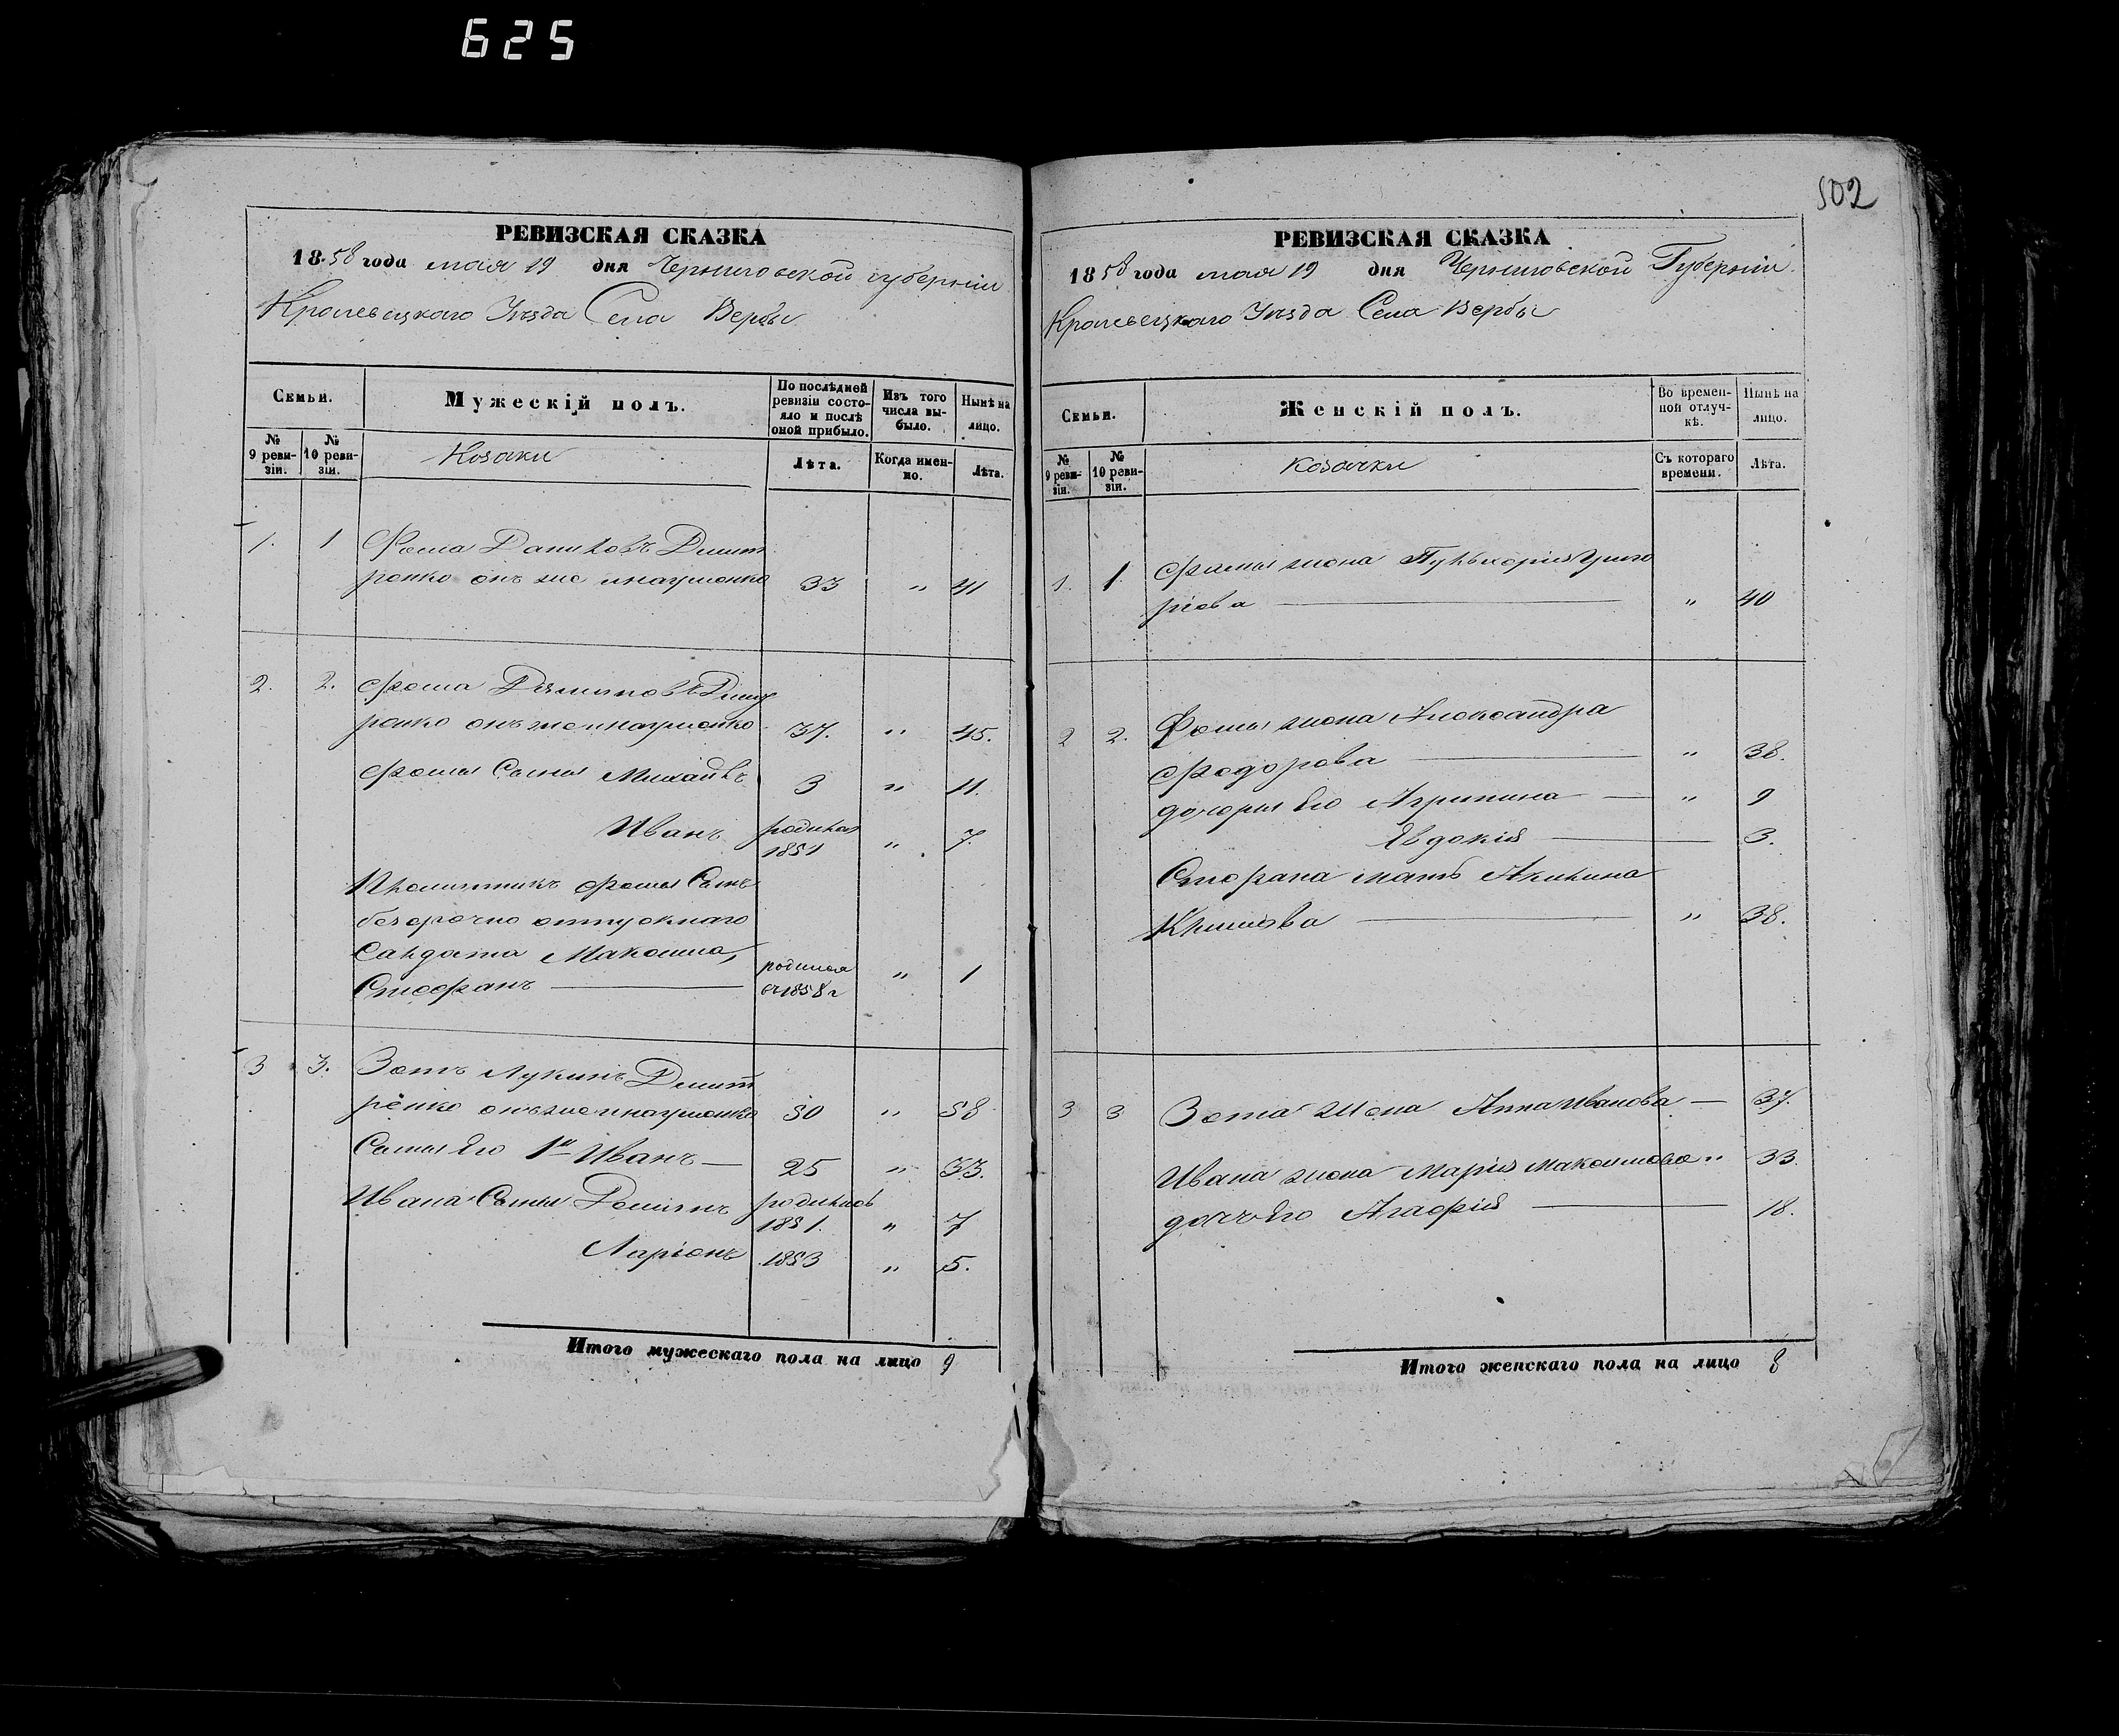 625
502
РЕВИЗСКАЯ СКАЗКА
1858 года мая 19 дня Черниговской губерніи
Кролевецкаго Уѣзда Села Вербы
Семьи.
Мужескій полъ.
По послѣдней ревизіи состояло и послѣ оной прибыло.
Изъ того числа выбыло.
Нынѣ на лицо.
№ 9 ревизіи.
№ 10 ревизіи.
Козаки
Лѣта.
Когда именно.
Лѣта.
1. 1 Фома Даниловъ Дмит
ренко онъ же 33 " 41
2. 2. Фома Дмит
ренко онъ же 37. " 45.
Фомы Сыны Михаилъ 3 " 11.
Иванъ родился 1851 " 7.
Племянникъ Фомы Сынъ
безсрочно отпускнаго
Салдата Максима,
Стефанъ родился въ 1858 г " 1
3 3. Зотъ Лукинъ Дмит
ренко онъ же 50 " 58
Сыны Его 1й Иванъ 25 " 33.
Ивана Сыны Демьянъ родился 1851. " 7
Ларіонъ 1853 " 5.
Итого мужескаго пола на лицо 9
РЕВИЗСКАЯ СКАЗКА
1858 года мая 19 дня Черниговской Губерніи
Кролевецкаго Уѣзда Села Вербы
Семьи.
Женскій полъ.
Во временной отлучкѣ.
Нынѣ на лицо.
№ 9 ревизіи.
№ 10 ревизіи.
Козачки
Съ котораго времени.
Лѣта.
1. 1. Фомы жена Пульхерія Григо
ріева " 40
2 2. Фомы жена Александра
Федорова " 38.
дочери Его Агрипина " 9
Явдокія 3.
Стефана мать Акилина
Климова " 38.
3 3 Зота жена Анна Иванова 37.
Ивана жена Марія Максимова " 33.
дочь Его Агафія 18.
Итого женскаго пола на лицо 8